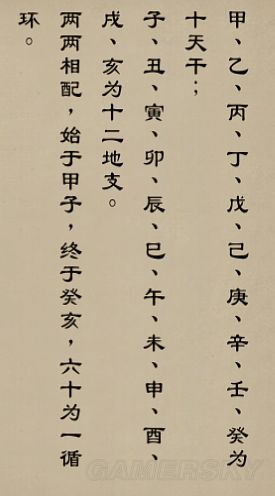 甲、乙、丙、丁、戊、己、庚、辛、壬、癸为
十天干；
子、丑、寅、卯、辰、巳、午、未、申、酉、
戌、亥为十二地支。
两两相配，始于甲子，终于癸亥，六十为一循
环。
GAMERSKY